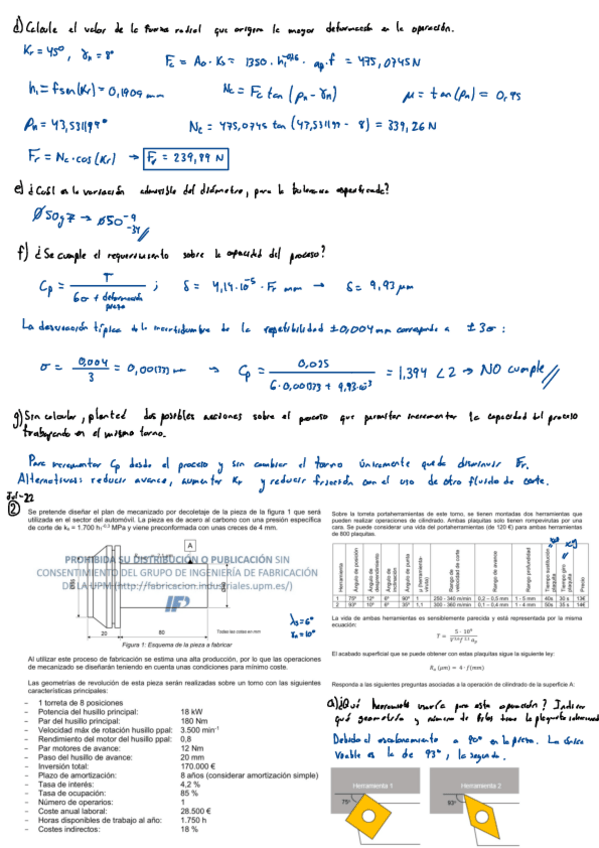 d) Calcule el valor de la fuerza radial que origina la mayor deformación en la operación.
Kr = 45°, γn = 8°
Fc = Ao · Ks = 1350 · h₁^-0,16 · ap · f = 475,0745 N
h₁ = f sen(Kr) = 0,1909 mm
Nc = Fc tan (ρn - γn)
μ = tan(ρn) = 0,95
ρn = 43,531199°
Nc = 475,0745 tan (43,531199 - 8) = 339,26 N
Fr = Nc · cos(Kr) → Fr = 239,89 N
e) ¿Cuál es la variación admisible del diámetro, para la tolerancia especificada?
Ø50g7 → Ø50 -9 -34
f) ¿Se cumple el requerimiento sobre la capacidad del proceso?
Cp = T / 6σ + deformación pieza ; δ = 4,14·10⁻⁵ · Fr mm → δ = 9,93 μm
La desviación típica de la incertidumbre de la repetibilidad ±0,004 mm corresponde a ±3σ:
σ = 0,004 / 3 = 0,00133 mm → Cp = 0,025 / 6·0,00133 + 9,93·10⁻³ = 1,394 < 2 → NO cumple
g) Sin calcular, plantee dos posibles acciones sobre el proceso que permitan incrementar la capacidad del proceso
trabajando en el mismo torno.
Para incrementar Cp desde el proceso y sin cambiar el torno únicamente queda disminuir Fr.
Alternativas reducir avance, aumentar Kr y reducir fricción con el uso de otro fluido de corte.
Jul-22
2
Se pretende diseñar el plan de mecanizado por decoletaje de la pieza de la figura 1 que será
utilizada en el sector del automóvil. La pieza es de acero al carbono con una presión específica
de corte de ks = 1.700 h⁻⁰·³ MPa y viene preconformada con unas creces de 4 mm.
PROHIBIDA SU DISTRIBUCIÓN O PUBLICACIÓN SIN
CONSENTIMIENTO DEL GRUPO DE INGENIERÍA DE FABRICACIÓN
DE LA UPM (http://fabricacion.industriales.upm.es/)
A
20
80
Todas las cotas en mm
λs = 6°
γn = 10°
Figura 1: Esquema de la pieza a fabricar
Al utilizar este proceso de fabricación se estima una alta producción, por lo que las operaciones
de mecanizado se diseñarán teniendo en cuenta unas condiciones para mínimo coste.
Las geometrías de revolución de esta pieza serán realizadas sobre un torno con las siguientes
características principales:
- 1 torreta de 8 posiciones
- Potencia del husillo principal: 18 kW
- Par del husillo principal: 180 Nm
- Velocidad máx de rotación husillo ppal: 3.500 min⁻¹
- Rendimiento del motor del husillo ppal: 0,8
- Par motores de avance: 12 Nm
- Paso del husillo de avance: 20 mm
- Inversión total: 170.000 €
- Plazo de amortización: 8 años (considerar amortización simple)
- Tasa de interés: 4,2 %
- Tasa de ocupación: 85 %
- Número de operarios: 1
- Coste anual laboral: 28.500 €
- Horas disponibles de trabajo al año: 1.750 h
- Costes indirectos: 18 %
Sobre la torreta portaherramientas de este torno, se tienen montadas dos herramientas que
pueden realizar operaciones de cilindrado. Ambas plaquitas solo tienen rompevirutas por una
cara. Se puede considerar una vida del portaherramientas (de 120 €) para ambas herramientas
de 800 plaquitas.
Herramienta
Ángulo de posición
Ángulo de desprendimiento
Ángulo de inclinación
Ángulo de punta
Rango de velocidad de corte
Rango de avance
Rango profundidad
Tiempo sustitución plaquita
Tiempo giro plaquita
Precio
1 75° 12° 6° 90° 1 250 - 340 m/min 0,2 – 0,5 mm 1 - 5 mm 40s 30 s 13€
2 93° 10° 6° 35° 1,1 300 - 360 m/min 0,1 – 0,4 mm 1 - 4 mm 50s 35 s 14€
La vida de ambas herramientas es sensiblemente parecida y está representada por la misma
ecuación:
El acabado superficial que se puede obtener con estas plaquitas sigue la siguiente ley:
Ra (μm) = 4 · f(mm)
Responda a las siguientes preguntas asociadas a la operación de cilindrado de la superficie A:
a) ¿Qué herramienta usaría para esta operación? Indicar
qué geometría y número de filos tiene la plaquita seleccionada
Debido al escalonamiento a 90° en la pieza. La única
viable es la de 93°, la segunda.
Herramienta 1
75°
Herramienta 2
93°